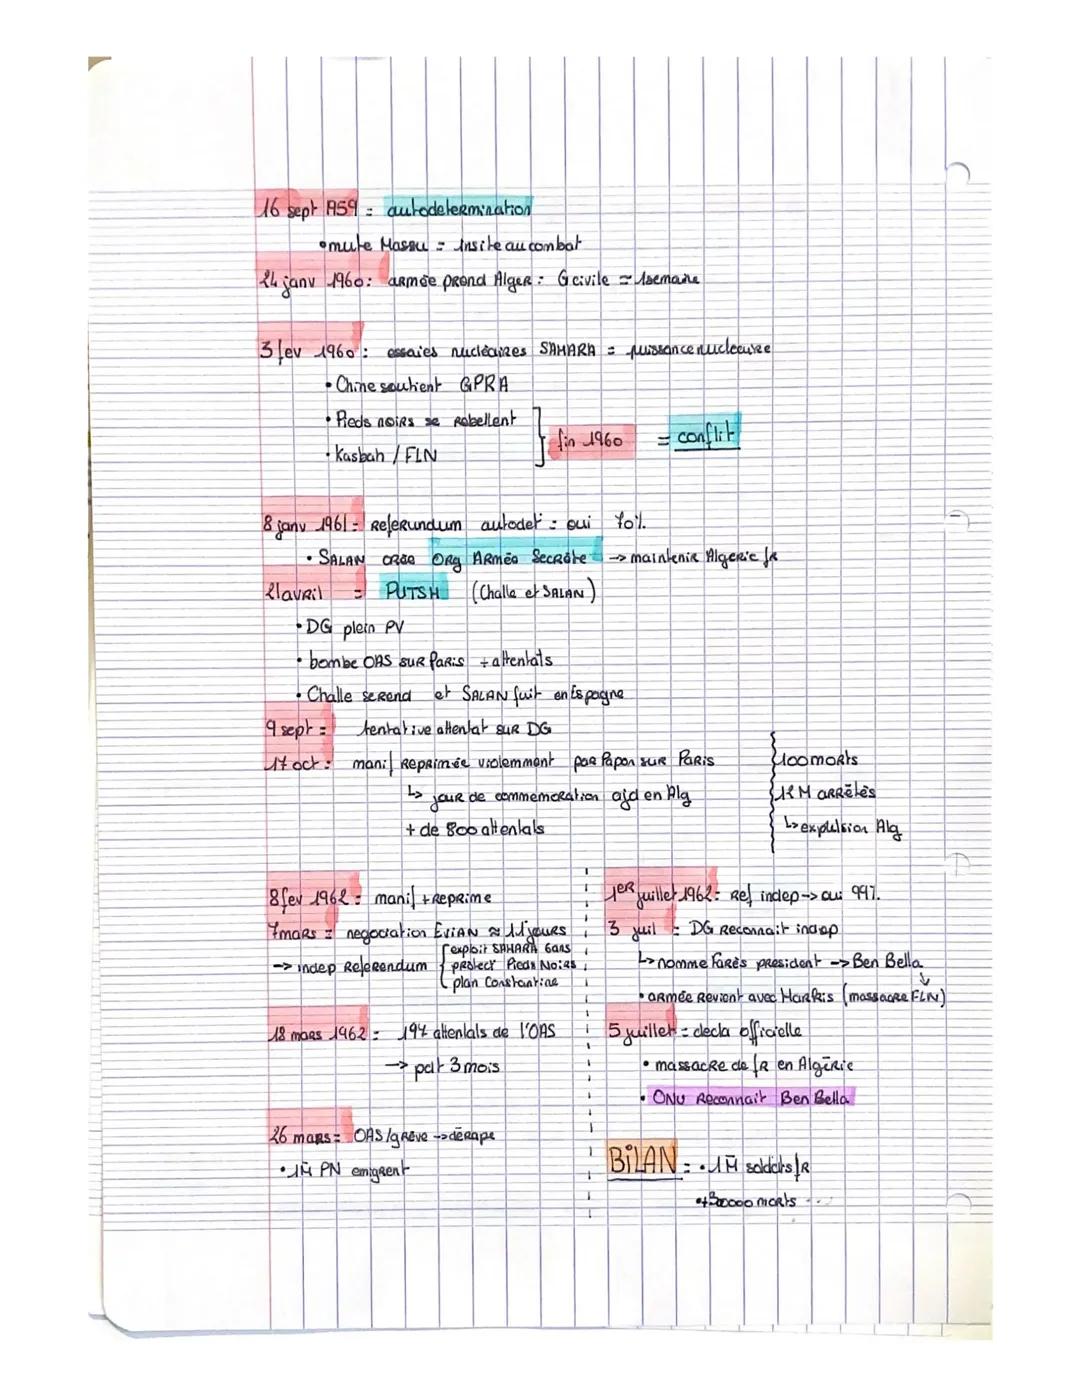 16 sept 1959 = autodetermination
• mute Massu = insite au combat
24 janv 1960 : armée prend Alger : G civile = 1 semaine
3 fev 1960 : essaies nucléaires SAHARA = puissance nucleeuire
• Chine soutient GPRA
• Pieds noirs se rebellent
• Kasbah / FLN
fin 1960 = conflit
8 janv 1961 = Referundum autodet : oui 70%.
• SALAN crée Org Armée Secrète → maintenir Algerie fr
21 avril = PUTSH (Challe et SALAN)
• DG plein PV
• bombe OAS sur Paris + attentats
• Challe se rend et SALAN fuit en Espagne
9 sept = tentative attentat sur DG
17 oct : manif reprimée violemment par Papon sur Paris
↳ jour de commemoration ajd en Alg
+ de 800 attentats
100 morts
12M arrêtés
↳ expulsion Alg
8 fev 1962 = manif + reprime
7 mars = negociation EVIAN ≈ 11 jours
→ indep Referendum { exploit SAHARA 6ans
protect Pieds Noirs
plan Constantine
18 mars 1962 = 197 attentats de l'OAS
→ pdt 3 mois
26 mars = OAS/grève → dérape
• 1M PN emigrent
1er juillet 1962 = Ref indep → oui 99%.
3 juil = DG reconnait indep
↳ nomme Farès president → Ben Bella
• armée revient avec Harkis (massacre FLN)
5 juillet = decla officielle
• massacre de fr en Algérie
• ONU reconnait Ben Bella
BILAN = • 1M soldats fr
morts